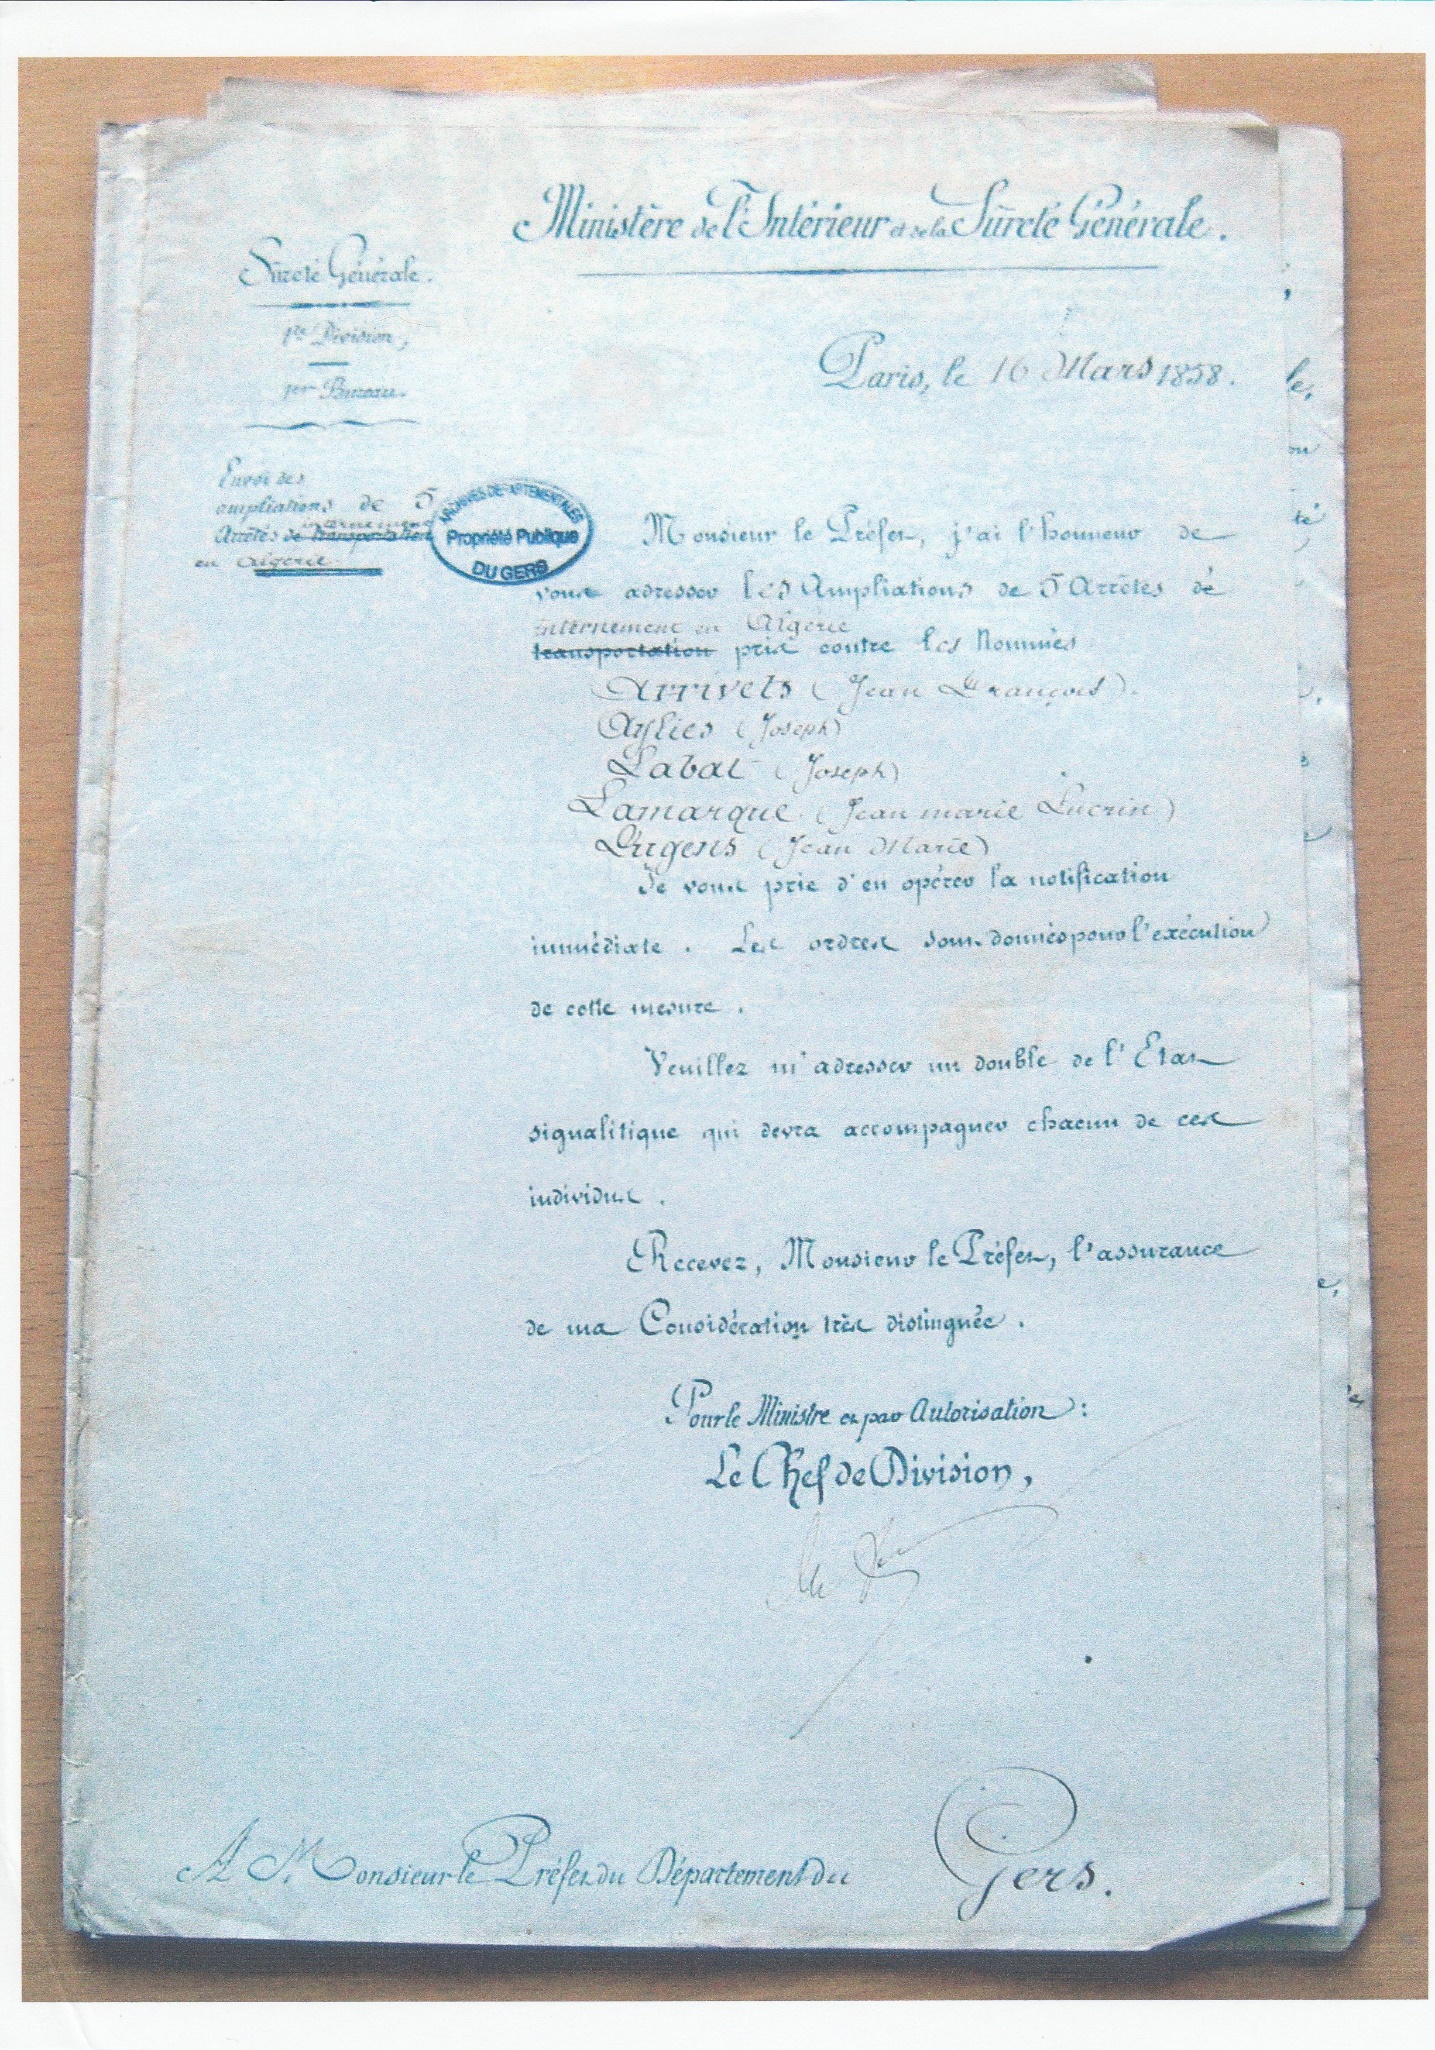 Ministère de l'Intérieur et de la Sûreté Générale.
Sûreté Générale.
1re Division,
1er Bureau.
Paris, le 16 Mars 1858.
Envoi des
ampliations de 5
internement
Arrêtés de transportation
en Algérie
ARCHIVES DEPARTEMENTALES
Propriété Publique
DU GERS
Monsieur le Préfet, j'ai l'honneur de
vous adresser les Ampliations de 5 Arrêtés dé
internement en Algérie
transportation pris contre les Nommés
Arrivets (Jean François).
Aylies (Joseph)
Labat (Joseph)
Lamarque (Jean marie Lucrin)
Lugens (Jean Marie)
Je vous prie d'en opérer la notification
immédiate. Les ordres sont donnés pour l'exécution
de cette mesure.
Veuillez m'adresser un double de l'Etat
signalitique qui devra accompagner chacun de ces
individus.
Recevez, Monsieur le Préfet, l'assurance
de ma Considération très distinguée.
Pour le Ministre et par Autorisation:
Le Chef de Division,
A Monsieur le Préfet du Département du Gers.